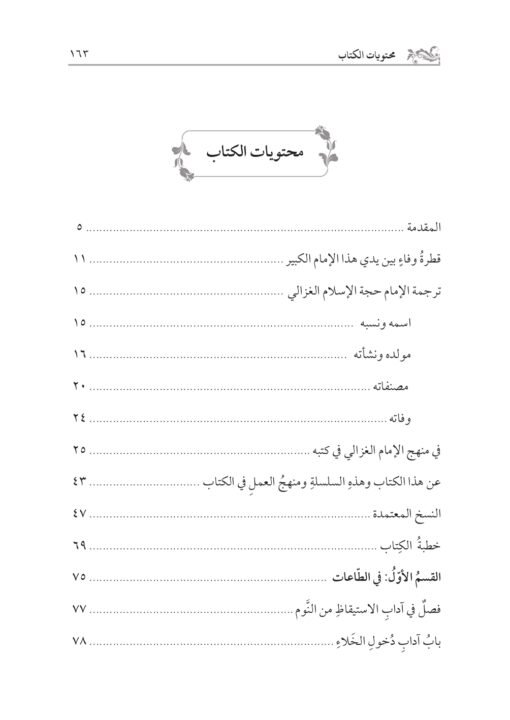 محتويات الكتاب ١٦٣
محتويات الكتاب
المقدمة ........ ٥
قطرةُ وفاءٍ بين يدي هذا الإمام الكبير ........ ١١
ترجمة الإمام حجة الإسلام الغزالي ........ ١٥
اسمه ونسبه ........ ١٥
مولده ونشأته ........ ١٦
مصنفاته ........ ٢٠
وفاته ........ ٢٤
في منهج الإمام الغزالي في كتبه ........ ٢٥
عن هذا الكتاب وهذهِ السلسلةِ ومنهجُ العملِ في الكتاب ........ ٤٣
النسخ المعتمدة ........ ٤٧
خطبةُ الكِتاب ........ ٦٩
القسمُ الأوّلُ: في الطّاعات ........ ٧٥
فصلٌ في آدابِ الاستيقاظِ من النَّوم ........ ٧٧
بابُ آدابِ دُخولِ الخَلاءِ ........ ٧٨